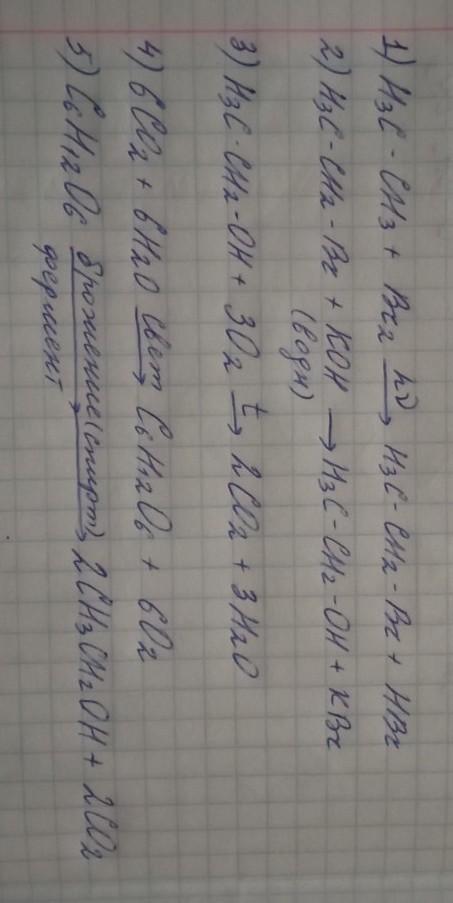 1) H3C - CH3 + Br2 hν→ H3C - CH2 - Br + HBr
2) H3C - CH2 - Br + KOH → H3C - CH2 - OH + KBr
(водн)
3) H3C - CH2 - OH + 3O2 t→ 2CO2 + 3H2O
4) 6CO2 + 6H2O свет→ C6H12O6 + 6O2
5) C6H12O6 брожение(спирт)→ 2CH3CH2OH + 2CO2
фермент